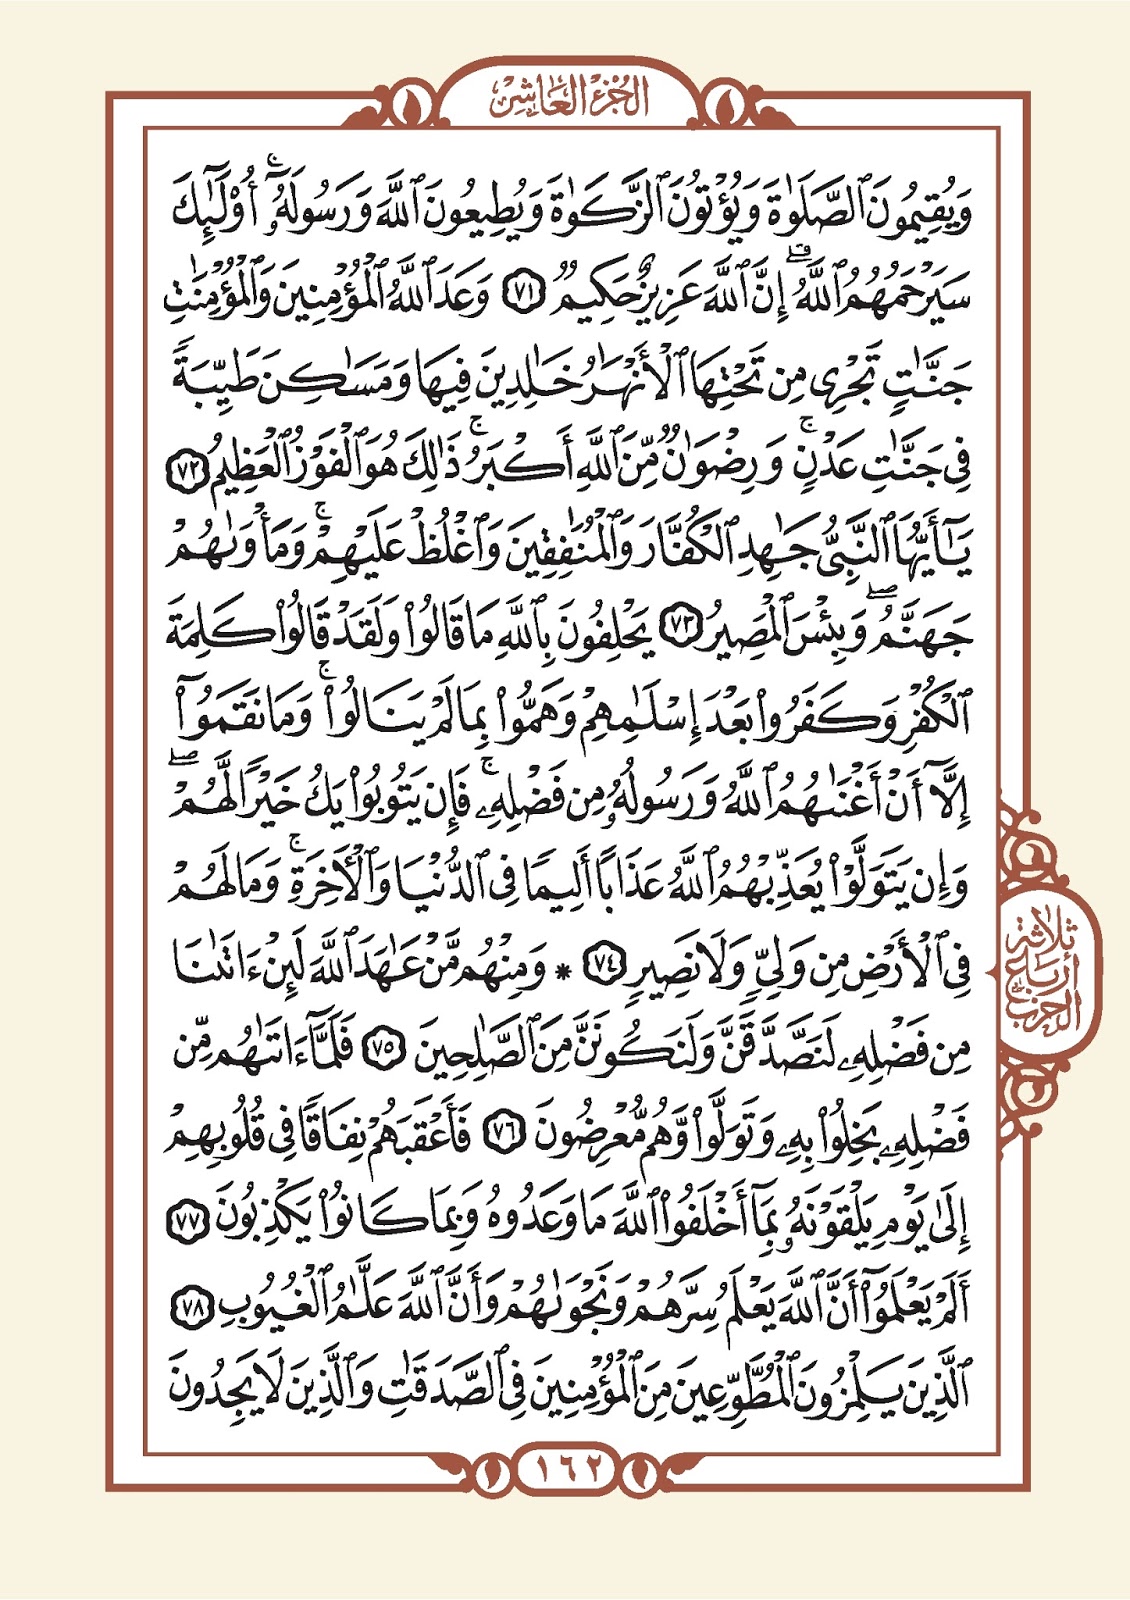 الجزء العاشر
وَيُقِيمُونَ ٱلصَّلَوٰةَ وَيُؤْتُونَ ٱلزَّكَوٰةَ وَيُطِيعُونَ ٱللَّهَ وَرَسُولَهُۥٓۚ أُو۟لَٰٓئِكَ
سَيَرْحَمُهُمُ ٱللَّهُۗ إِنَّ ٱللَّهَ عَزِيزٌ حَكِيمٌ ٧١ وَعَدَ ٱللَّهُ ٱلْمُؤْمِنِينَ وَٱلْمُؤْمِنَٰتِ
جَنَّٰتٍ تَجْرِى مِن تَحْتِهَا ٱلْأَنْهَٰرُ خَٰلِدِينَ فِيهَا وَمَسَٰكِنَ طَيِّبَةً
فِى جَنَّٰتِ عَدْنٍۚ وَرِضْوَٰنٌ مِّنَ ٱللَّهِ أَكْبَرُۚ ذَٰلِكَ هُوَ ٱلْفَوْزُ ٱلْعَظِيمُ ٧٢
يَٰٓأَيُّهَا ٱلنَّبِىُّ جَٰهِدِ ٱلْكُفَّارَ وَٱلْمُنَٰفِقِينَ وَٱغْلُظْ عَلَيْهِمْۚ وَمَأْوَىٰهُمْ
جَهَنَّمُۖ وَبِئْسَ ٱلْمَصِيرُ ٧٣ يَحْلِفُونَ بِٱللَّهِ مَا قَالُوا۟ وَلَقَدْ قَالُوا۟ كَلِمَةَ
ٱلْكُفْرِ وَكَفَرُوا۟ بَعْدَ إِسْلَٰمِهِمْ وَهَمُّوا۟ بِمَا لَمْ يَنَالُوا۟ۚ وَمَا نَقَمُوٓا۟
إِلَّآ أَنْ أَغْنَىٰهُمُ ٱللَّهُ وَرَسُولُهُۥ مِن فَضْلِهِۦۚ فَإِن يَتُوبُوا۟ يَكُ خَيْرًا لَّهُمْۖ
وَإِن يَتَوَلَّوْا۟ يُعَذِّبْهُمُ ٱللَّهُ عَذَابًا أَلِيمًا فِى ٱلدُّنْيَا وَٱلْءَاخِرَةِۚ وَمَا لَهُمْ
فِى ٱلْأَرْضِ مِن وَلِىٍّ وَلَا نَصِيرٍ ٧٤ * وَمِنْهُم مَّنْ عَٰهَدَ ٱللَّهَ لَئِنْ ءَاتَىٰنَا
مِن فَضْلِهِۦ لَنَصَّدَّقَنَّ وَلَنَكُونَنَّ مِنَ ٱلصَّٰلِحِينَ ٧٥ فَلَمَّآ ءَاتَىٰهُم مِّن
فَضْلِهِۦ بَخِلُوا۟ بِهِۦ وَتَوَلَّوا۟ وَّهُم مُّعْرِضُونَ ٧٦ فَأَعْقَبَهُمْ نِفَاقًا فِى قُلُوبِهِمْ
إِلَىٰ يَوْمِ يَلْقَوْنَهُۥ بِمَآ أَخْلَفُوا۟ ٱللَّهَ مَا وَعَدُوهُ وَبِمَا كَانُوا۟ يَكْذِبُونَ ٧٧
أَلَمْ يَعْلَمُوٓا۟ أَنَّ ٱللَّهَ يَعْلَمُ سِرَّهُمْ وَنَجْوَىٰهُمْ وَأَنَّ ٱللَّهَ عَلَّٰمُ ٱلْغُيُوبِ ٧٨
ٱلَّذِينَ يَلْمِزُونَ ٱلْمُطَّوِّعِينَ مِنَ ٱلْمُؤْمِنِينَ فِى ٱلصَّدَقَٰتِ وَٱلَّذِينَ لَا يَجِدُونَ
ثلاثة
أرباع
الحزب
١٦٢